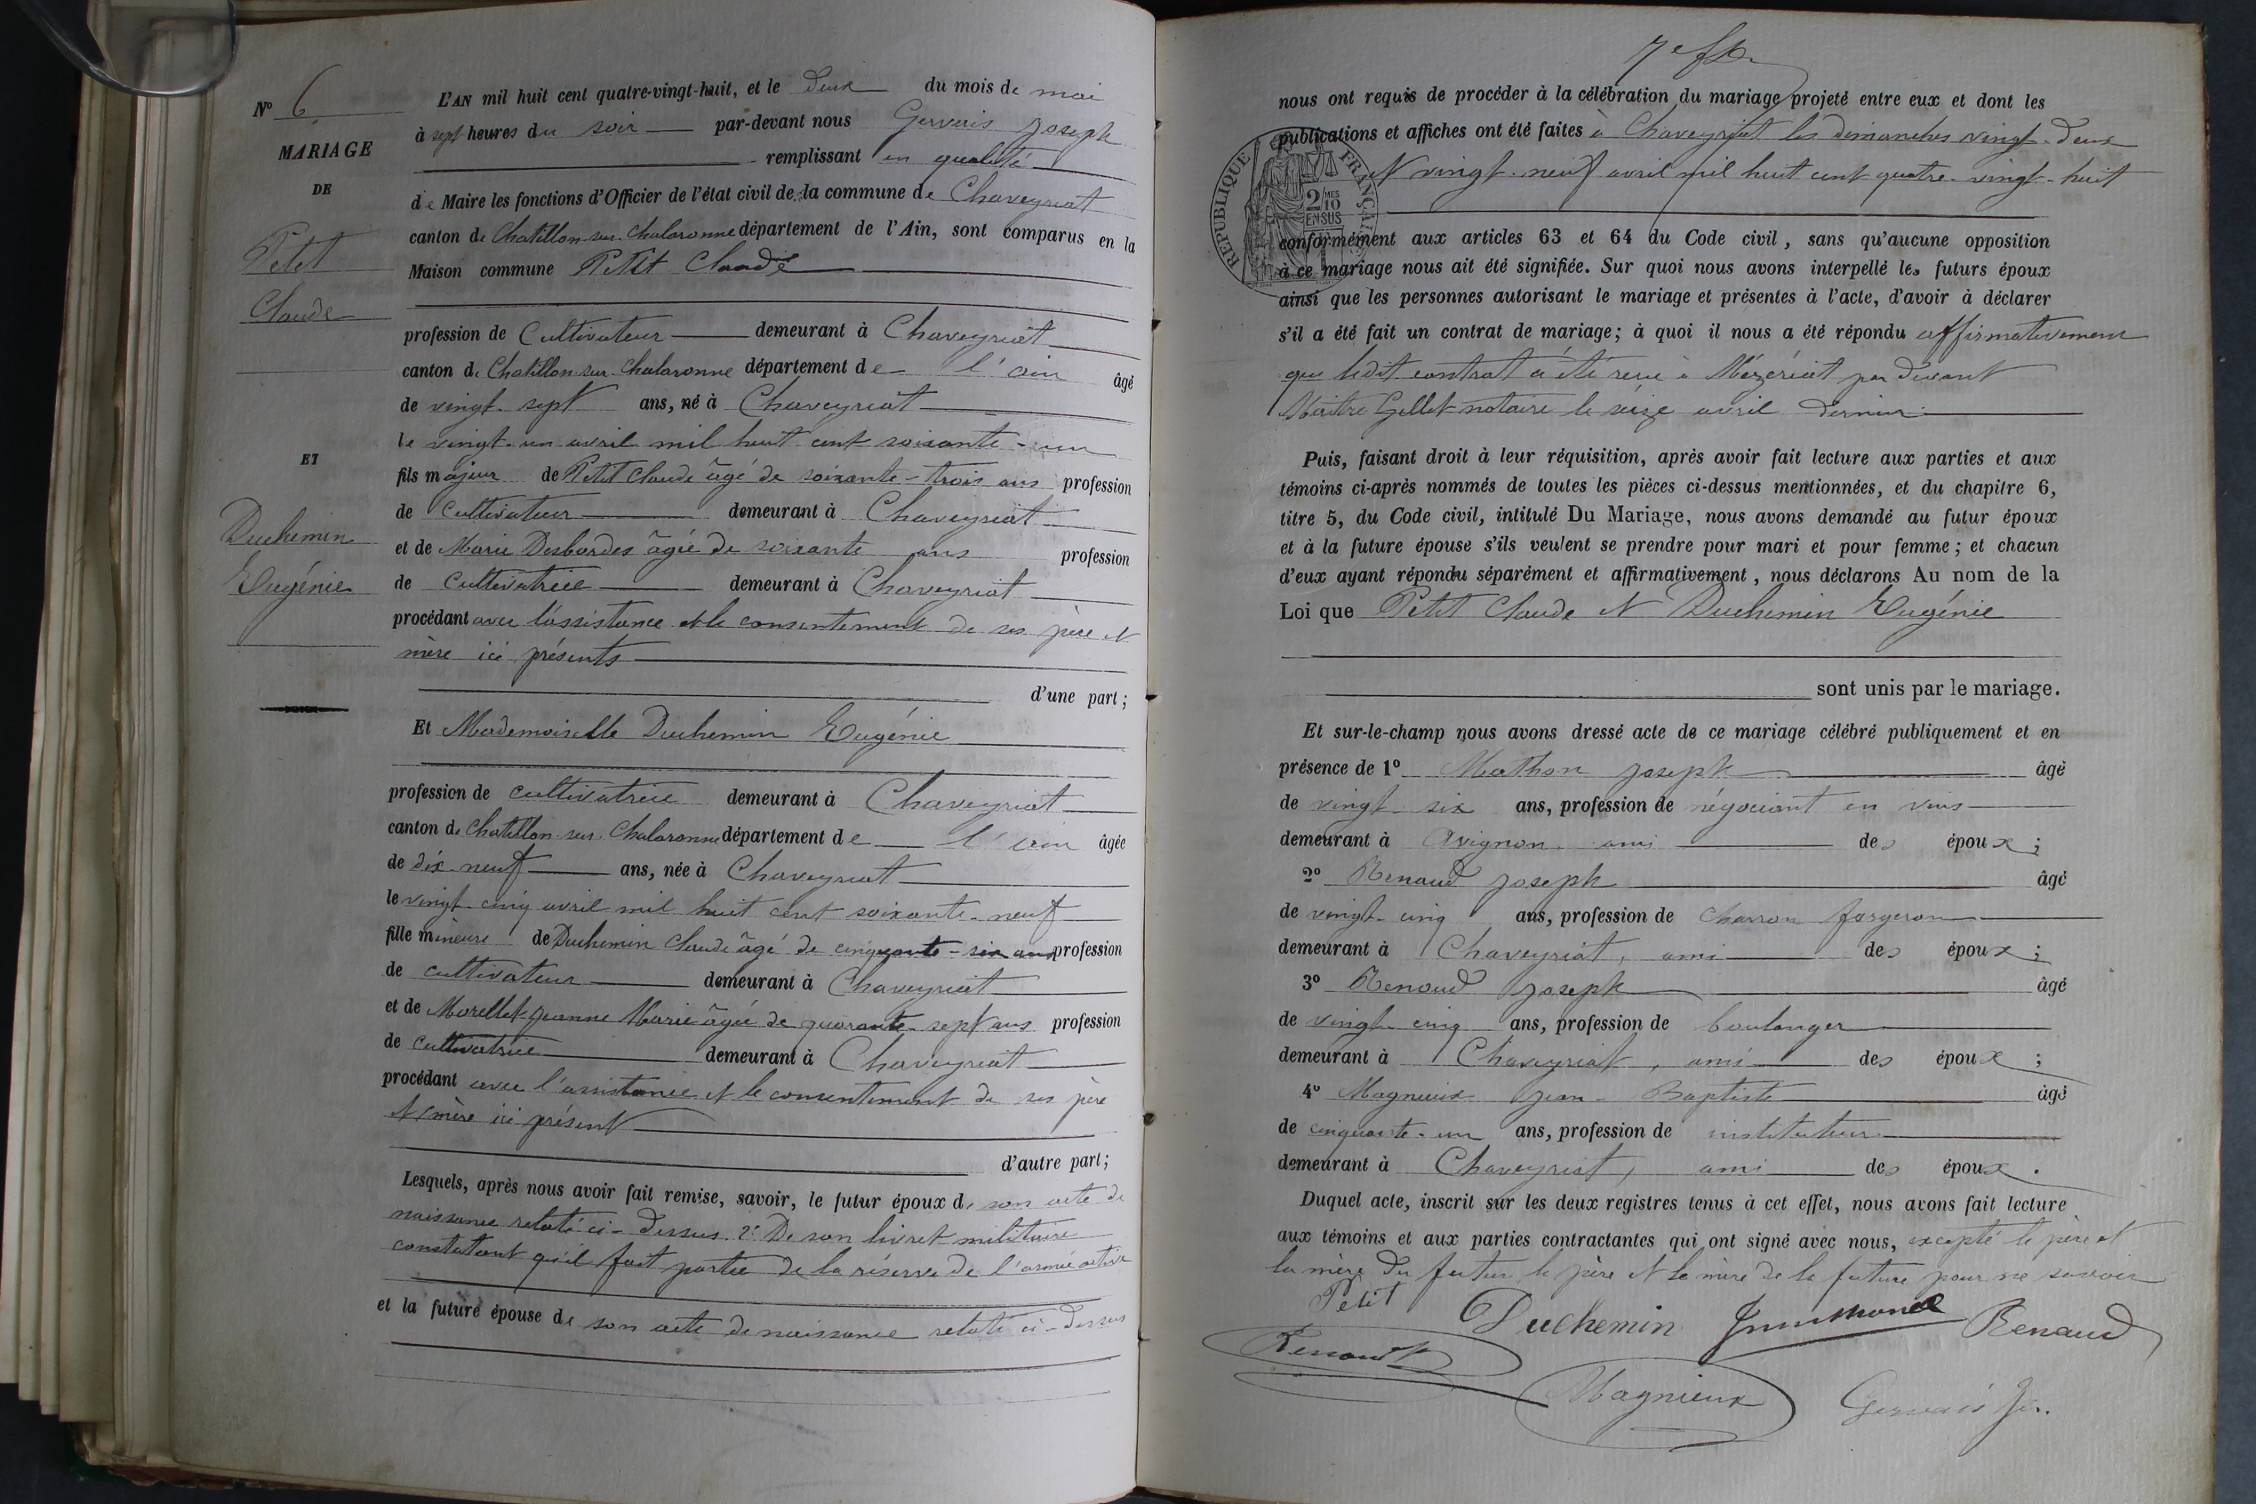 N° 6
MARIAGE
DE
Petit
Claude
ET
Duchemin
Eugénie
L'AN mil huit cent quatre-vingt-huit, et le deux du mois de mai
à sept heures du soir par-devant nous Gervais Joseph
remplissant en qualité
de Maire les fonctions d'Officier de l'état civil de la commune de Chaveyriat
canton de Chatillon-sur-Chalaronne département de l'Ain, sont comparus en la
Maison commune Petit Claude
profession de Cultivateur demeurant à Chaveyriat
canton de Chatillon-sur-Chalaronne département de l'ain âgé
de vingt-sept ans, né à Chaveyriat
le vingt-un avril mil huit cent soixante-un
fils majeur de Petit Claude âgé de soixante-trois ans profession
de cultivateur demeurant à Chaveyriat
et de Marie Desbordes âgée de soixante ans profession
de cultivatrice demeurant à Chaveyriat
procédant avec l'assistance et le consentement de ses père et
mère ici présents
d'une part;
Et Mademoiselle Duchemin Eugénie
profession de cultivatrice demeurant à Chaveyriat
canton de Chatillon-sur-Chalaronne département de l'ain âgée
de dix-neuf ans, née à Chaveyriat
le vingt-cinq avril mil huit cent soixante-neuf
fille mineure de Duchemin Claude âgé de cinquante-six ans profession
de cultivateur demeurant à Chaveyriat
et de Morellet Jeanne Marie âgée de quarante-sept ans profession
de cultivatrice demeurant à Chaveyriat
procédant avec l'assistance et le consentement de ses père
et mère ici présent
d'autre part;
Lesquels, après nous avoir fait remise, savoir, le futur époux de son acte de
naissance relaté ci-dessus. 2° De son livret militaire
constatant qu'il fait partie de la réserve de l'armée active
et la future épouse de son acte de naissance relaté ci-dessus
7e
nous ont requis de procéder à la célébration du mariage projeté entre eux et dont les
publications et affiches ont été faites à Chaveyriat les dimanches vingt-deux
et vingt-neuf avril mil huit cent quatre-vingt-huit
RÉPUBLIQUE FRANÇAISE
2 MES
10
EN SUS
conformément aux articles 63 et 64 du Code civil, sans qu'aucune opposition
à ce mariage nous ait été signifiée. Sur quoi nous avons interpellé les futurs époux
ainsi que les personnes autorisant le mariage et présentes à l'acte, d'avoir à déclarer
s'il a été fait un contrat de mariage; à quoi il nous a été répondu affirmativement
que ledit contrat a été reçu à Mézériat par devant
Maitre Gellet notaire le seize avril dernier
Puis, faisant droit à leur réquisition, après avoir fait lecture aux parties et aux
témoins ci-après nommés de toutes les pièces ci-dessus mentionnées, et du chapitre 6,
titre 5, du Code civil, intitulé Du Mariage, nous avons demandé au futur époux
et à la future épouse s'ils veulent se prendre pour mari et pour femme; et chacun
d'eux ayant répondu séparément et affirmativement, nous déclarons Au nom de la
Loi que Petit Claude et Duchemin Eugénie
sont unis par le mariage.
Et sur-le-champ nous avons dressé acte de ce mariage célébré publiquement et en
présence de 1° Mathon Joseph âgé
de vingt-six ans, profession de négociant en vins
demeurant à Avignon ami des époux;
2° Renaud Joseph âgé
de vingt-cinq ans, profession de charron forgeron
demeurant à Chaveyriat, ami des époux;
3° Renoud Joseph âgé
de vingt-cinq ans, profession de boulanger
demeurant à Chaveyriat, ami des époux;
4° Magnieux Jean-Baptiste âgé
de cinquante-un ans, profession de instituteur
demeurant à Chaveyriat, ami des époux.
Duquel acte, inscrit sur les deux registres tenus à cet effet, nous avons fait lecture
aux témoins et aux parties contractantes qui ont signé avec nous, excepté le père et
la mère du futur, le père et la mère de la future pour ne savoir
Petit
Duchemin
Renaud
Renoud
Magnieux
Gervais